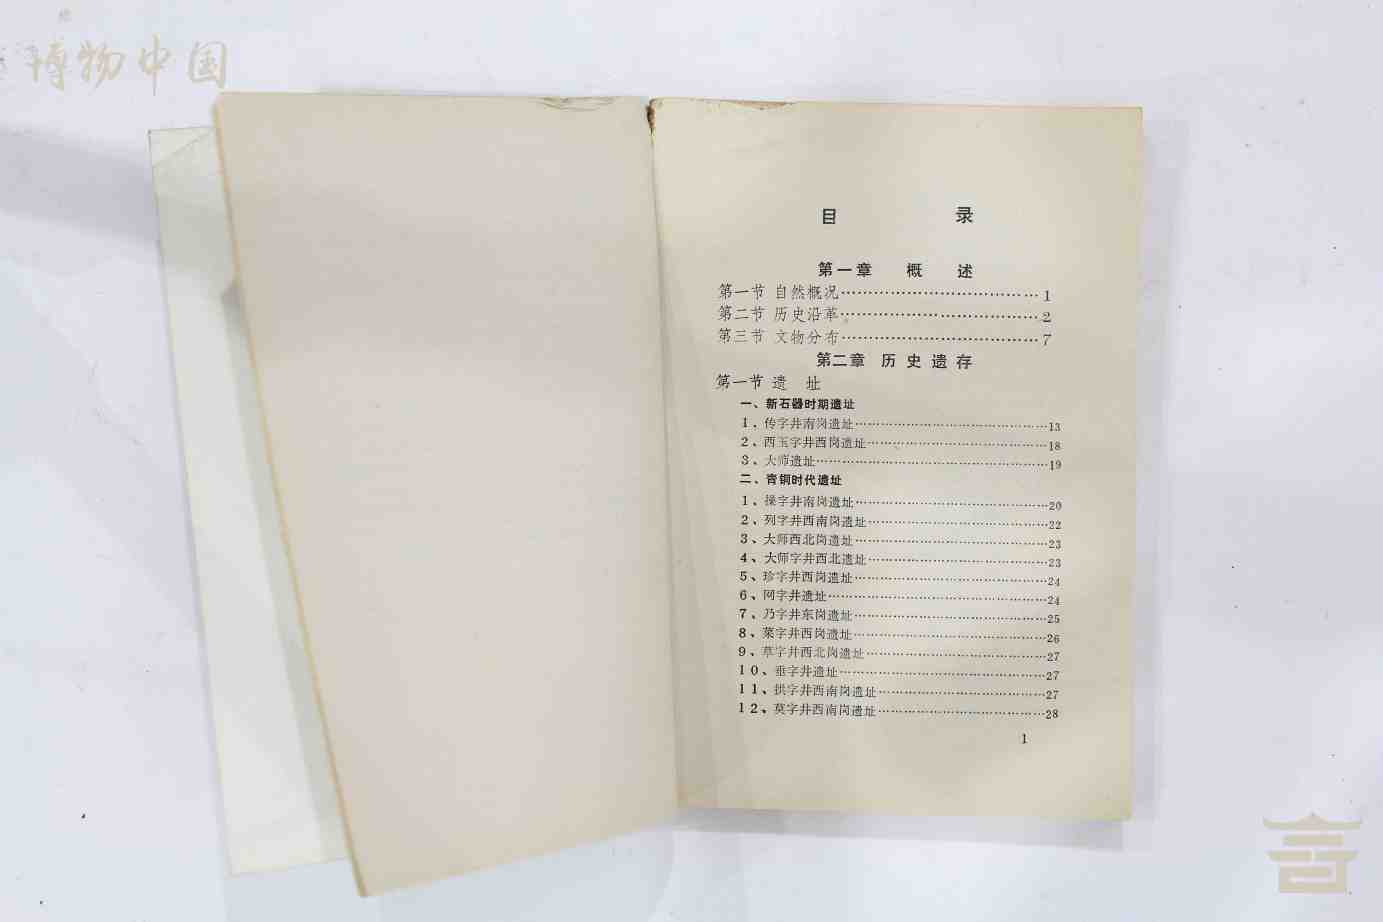 博物中国
目 录
第一章 概 述
第一节 自然概况……………………………… 1
第二节 历史沿革……………………………… 2
第三节 文物分布……………………………… 7
第二章 历 史 遗 存
第一节 遗 址
一、新石器时期遗址
1、传字井南岗遗址………………………………13
2、西玉字井西岗遗址……………………………18
3、大师遗址………………………………………19
二、青铜时代遗址
1、操字井南岗遗址………………………………20
2、列字井西南岗遗址……………………………22
3、大师西北岗遗址………………………………23
4、大师字井西北遗址……………………………23
5、珍字井西岗遗址………………………………24
6、网字井遗址……………………………………24
7、乃字井东岗遗址………………………………25
8、菜字井西岗遗址………………………………26
9、草字井西北岗遗址……………………………27
10、垂字井遗址…………………………………27
11、拱字井西南岗遗址…………………………27
12、莫字井西南岗遗址…………………………28
1